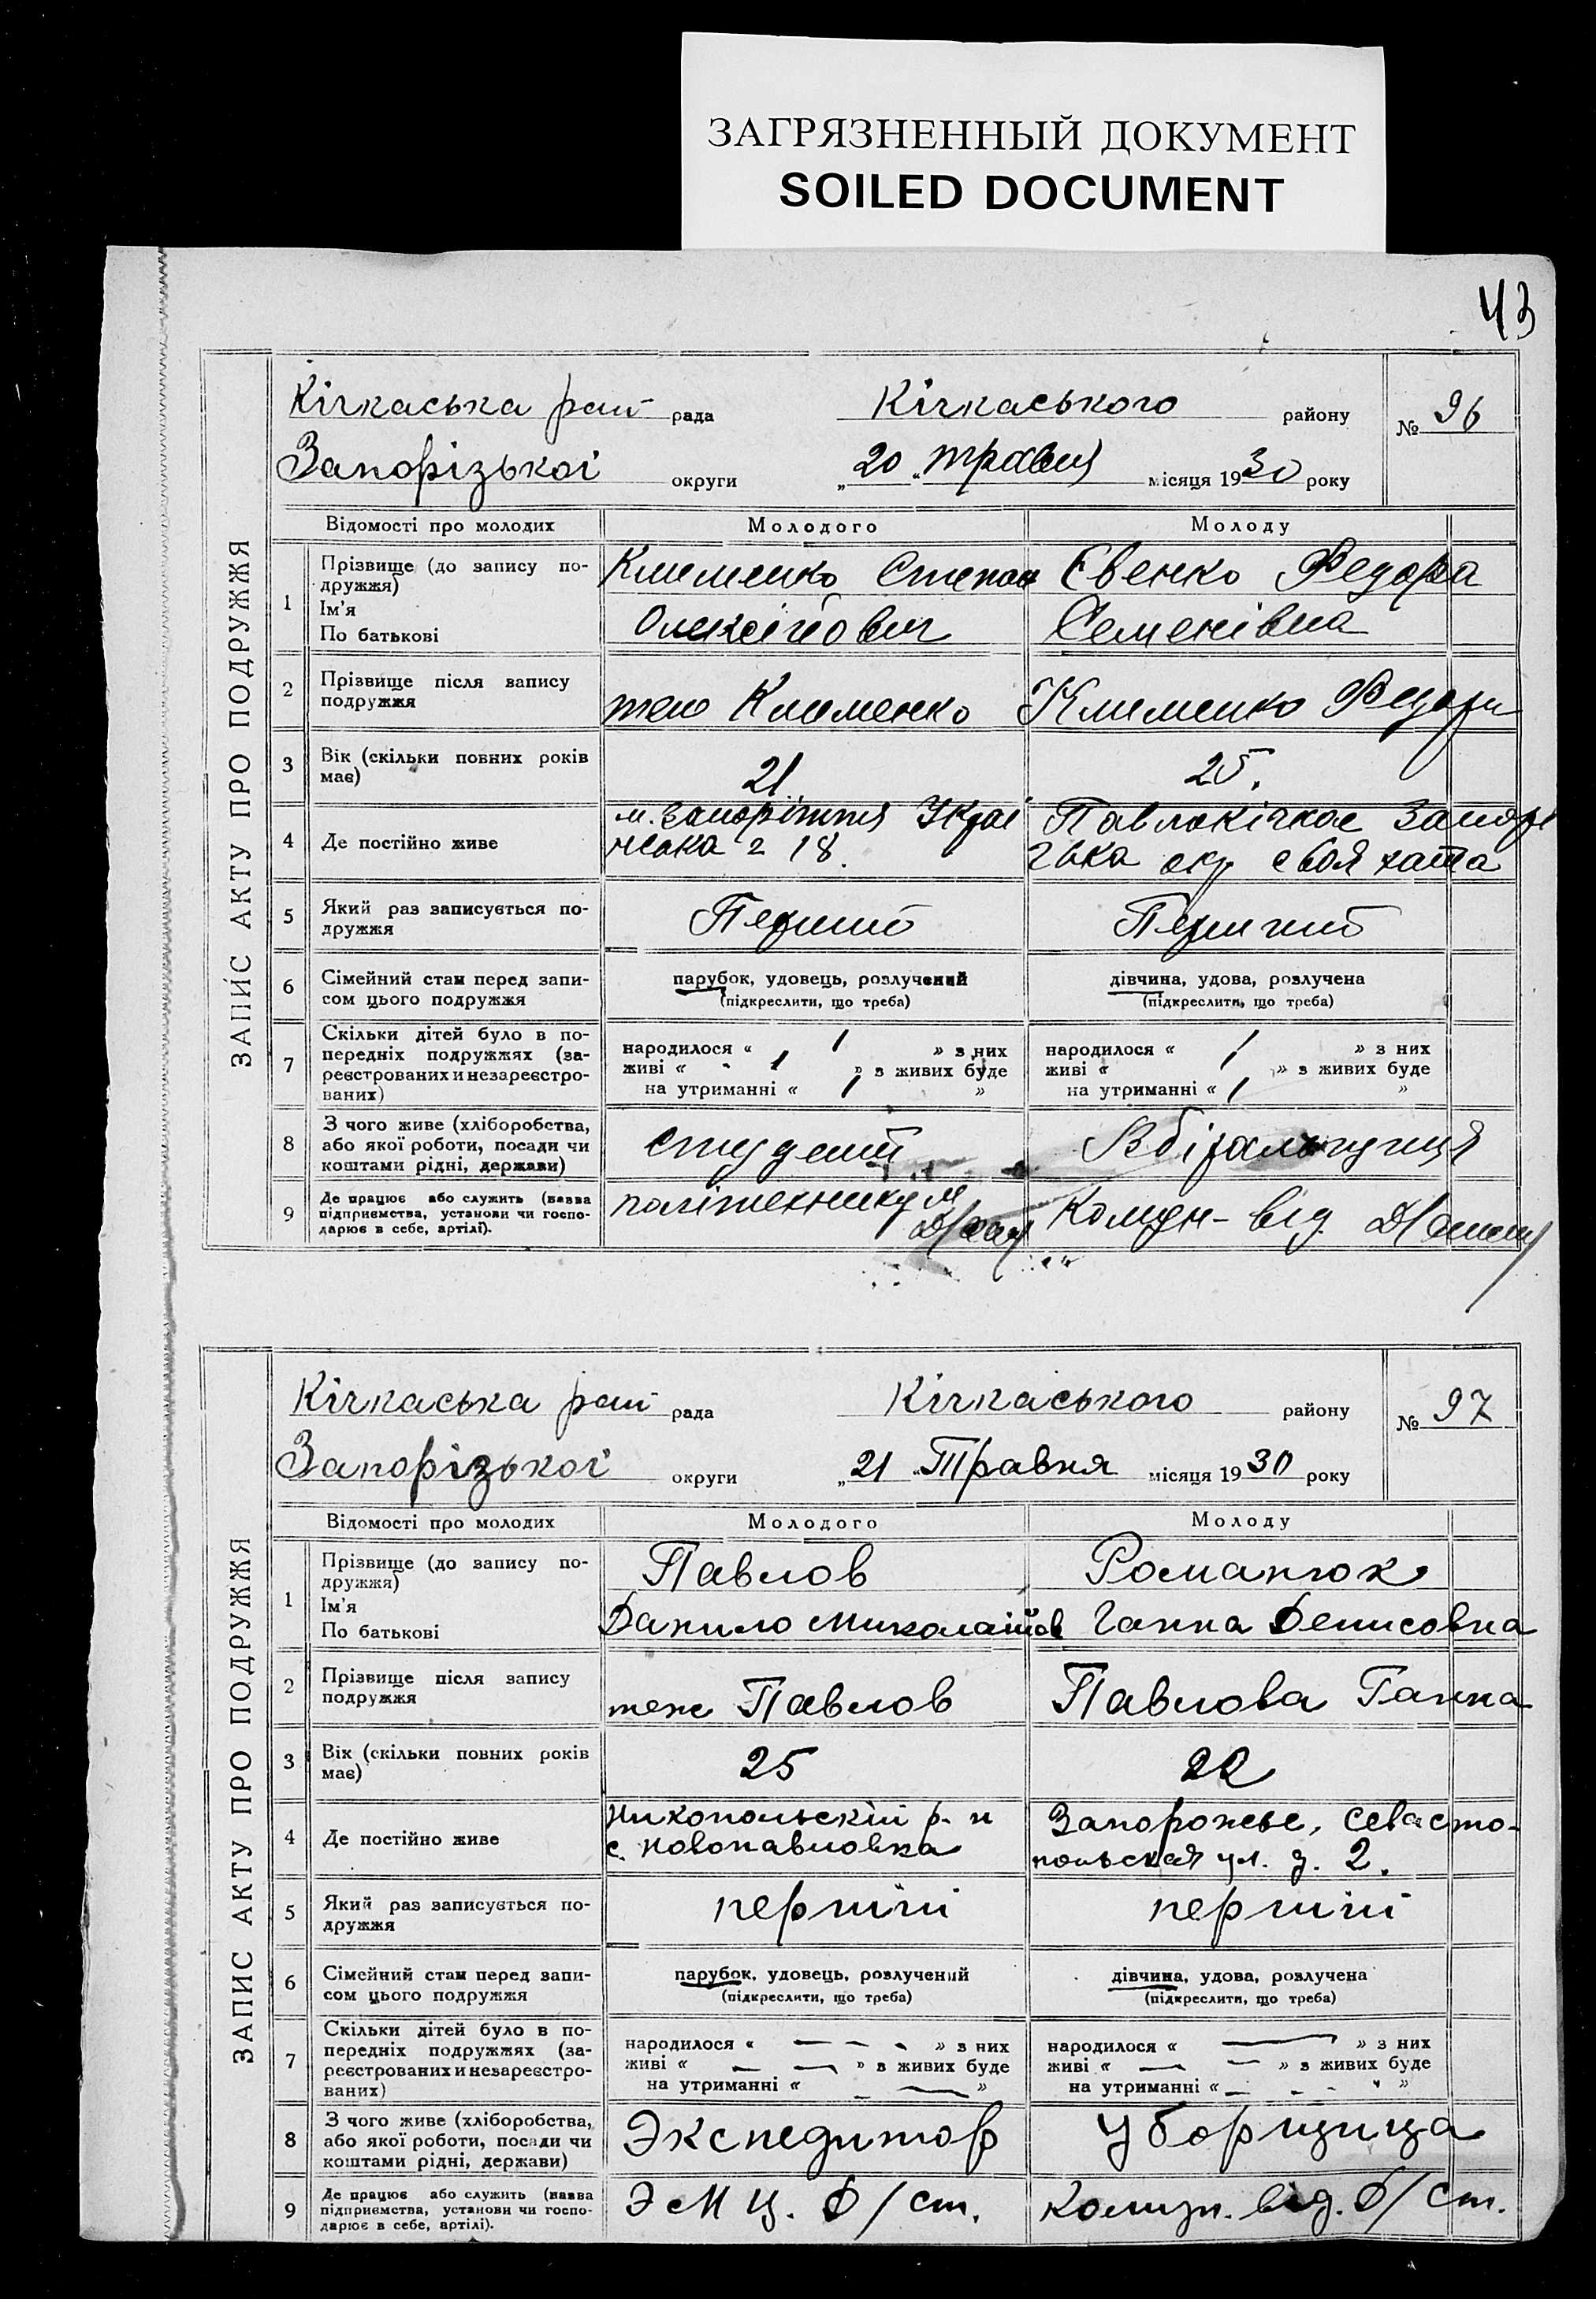 ЗАГРЯЗНЕННЫЙ ДОКУМЕНТ
SOILED DOCUMENT
43
ЗАПИС АКТУ ПРО ПОДРУЖЖЯ
Кічкаська рай рада Кічкаського району № 96
Запорізької округи „20“ травня місяця 1930 року
Відомості про молодих Молодого Молоду
1 Прізвище (до запису по-
дружжя)
Ім'я
По батькові
Клименко Степан
Олексійович
Євенко Федора
Семенівна
2 Прізвище після запису
подружжя
теж Клименко
Клименко Федора
3 Вік (скільки повних років
має)
21
25.
4 Де постійно живе
м. Запоріжжя Украї
нська 2 18.
Павлокічкас Запорі
зька окр своя хата
5 Який раз записується по-
дружжя
Перший
Перший
6 Сімейний стан перед запи-
сом цього подружжя
парубок, удовець, розлучений
(підкреслити, що треба)
дівчина, удова, розлучена
(підкреслити, що треба)
7 Скільки дітей було в по-
передніх подружжях (за-
реєстрованих и незареєстро-
ваних)
народилося « / » з них
живі « / » з живих буде
на утриманні « / »
народилося « / » з них
живі « » з живих буде
на утриманні « / »
8 З чого живе (хліборобства,
або якої роботи, посади чи
коштами рідні, держави)
студент
Вбіральщиця
9 Де працює або служить (назва
підприємства, установи чи госпо-
дарює в себе, артілі).
політехникум
Комун- від.
ЗАПИС АКТУ ПРО ПОДРУЖЖЯ
Кічкаська рай рада Кічкаського району № 97
Запорізької округи „21“ Травня місяця 1930 року
Відомості про молодих Молодого Молоду
1 Прізвище (до запису по-
дружжя)
Ім'я
По батькові
Павлов
Данило Миколайов
Романюк
Ганна Денисовна
2 Прізвище після запису
подружжя
теж Павлов
Павлова Ганна
3 Вік (скільки повних років
має)
25
22
4 Де постійно живе
Никопольскій р-н
с. Новопавловка
Запорожье, Севасто-
польская ул. д. 2.
5 Який раз записується по-
дружжя
перший
перший
6 Сімейний стан перед запи-
сом цього подружжя
парубок, удовець, розлучений
(підкреслити, що треба)
дівчина, удова, розлучена
(підкреслити, що треба)
7 Скільки дітей було в по-
передніх подружжях (за-
реєстрованих и незареєстро-
ваних)
народилося « — — - » з них
живі « — — » з живих буде
на утриманні « - — »
народилося « — » з них
живі « — — » з живих буде
на утриманні « — - - »
8 З чого живе (хліборобства,
або якої роботи, посади чи
коштами рідні, держави)
Экспедитор
Уборщица
9 Де працює або служить (назва
підприємства, установи чи госпо-
дарює в себе, артілі).
ЭМЦ. Д/ст.
Комун. від. Д/ст.